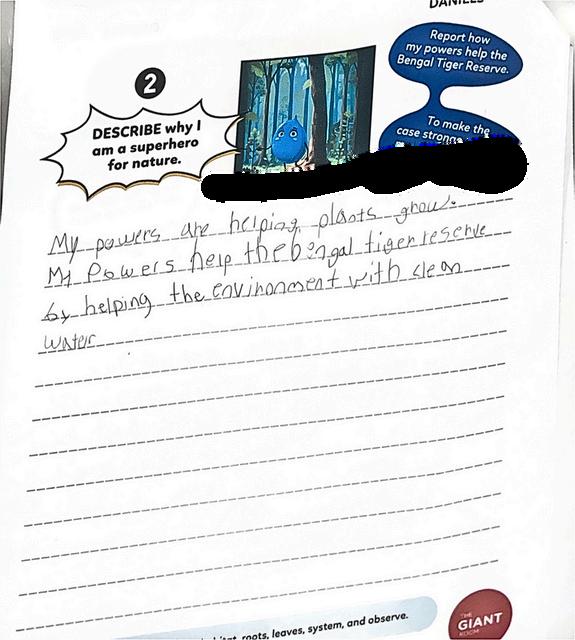 DANIELS
Report how
my powers help the
Bengal Tiger Reserve.
2
DESCRIBE why I
am a superhero
for nature.
To make the
case strong
My powers are helping plants grow.
My Powers help the bengal tiger reserve
by helping the environment with clean
water
roots, leaves, system, and observe.
THE
GIANT
ROOM